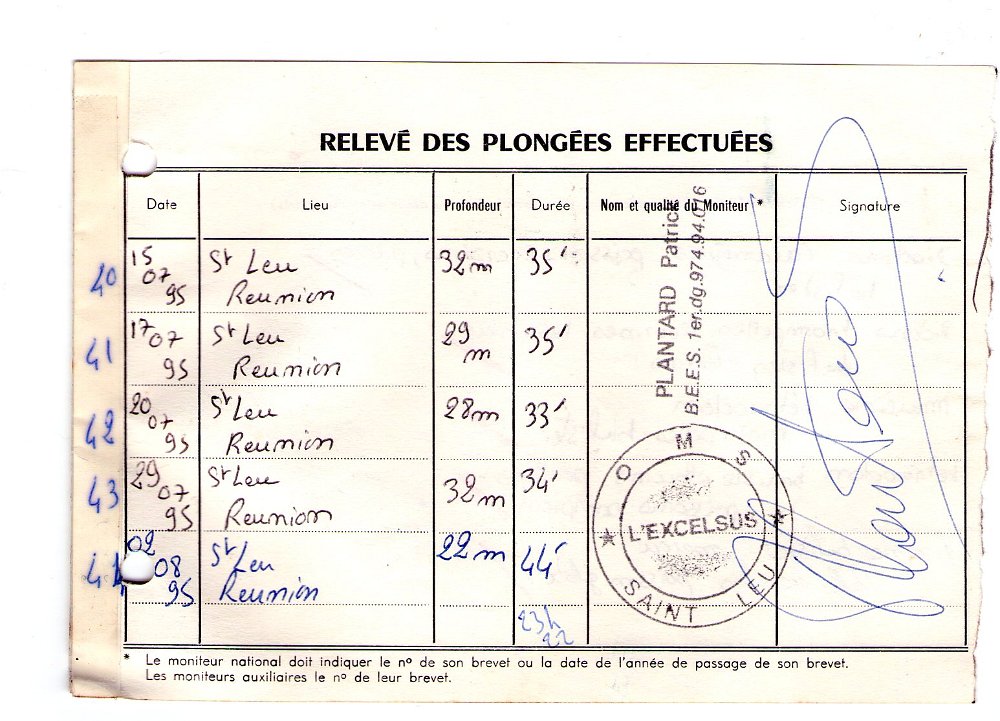 RELEVÉ DES PLONGÉES EFFECTUÉES
Date Lieu Profondeur Durée Nom et qualité du Moniteur * Signature
40 15 07 95 St Leu Reunion 32m 35'
41 17 07 95 St Leu Reunion 29 m 35'
42 20 07 95 St Leu Reunion 28m 33'
43 29 07 95 St Leu Reunion 32m 34'
44 02 08 95 St Leu Reunion 22m 44'
23h 22
PLANTARD Patrice
B.E.E.S. 1er.dg.974.94.016
O M S
★ L'EXCELSUS ★
SAINT LEU
* Le moniteur national doit indiquer le nº de son brevet ou la date de l'année de passage de son brevet.
Les moniteurs auxiliaires le nº de leur brevet.